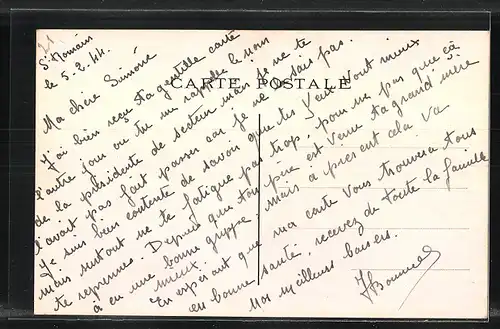 21
St Romain
le 5.2.44.
CARTE POSTALE
Ma chère Simone
J'ai bien reçu ta gentille carte
l'autre jour ou tu me rappelle le nom
de la présidente de secteur mais je ne te
l'avait pas fait passer car je ne le sais pas.
Je suis bien contente de savoir que tes yeux vont mieux
mais surtout ne te fatigue pas trop, pour ne pas que ça
te reprenne. Depuis que ton père est venu ta grand'mère
à eu une bonne grippe. Mais à présent cela va
mieux.
En espérant que ma carte vous trouvera tous
en bonne santé, recevez de toute la famille
Nos meilleurs baisers.